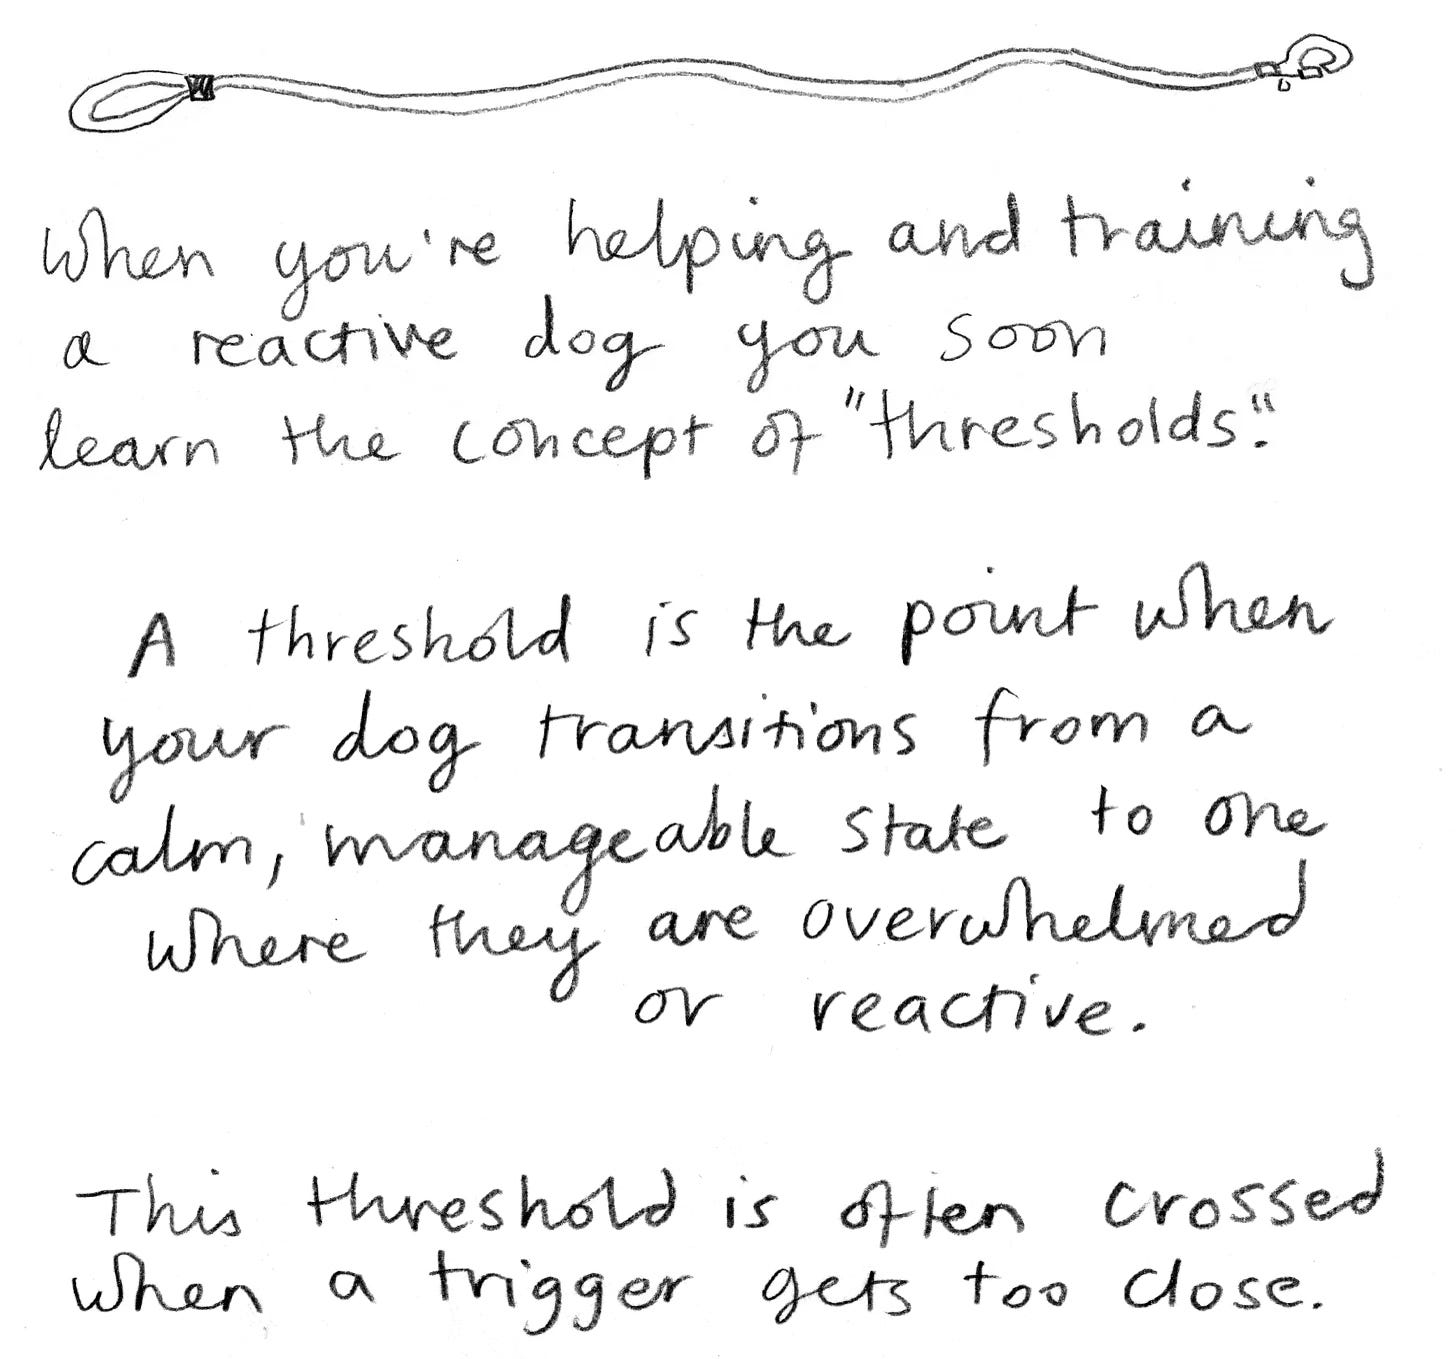 When you're helping and training
a reactive dog you soon
learn the concept of "thresholds".
A threshold is the point when
your dog transitions from a
calm, manageable state to one
where they are overwhelmed
or reactive.
This threshold is often crossed
when a trigger gets too close.